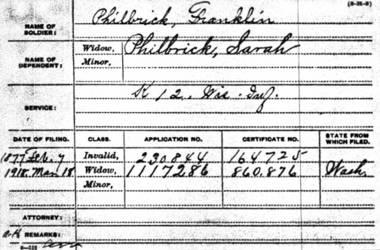 (3-35-3)
NAME OF SOLDIER: Philbrick, Franklin
NAME OF DEPENDENT: Widow, Philbrick, Sarah
Minor,
SERVICE: K 12 Wis. Inf.
DATE OF FILING. CLASS. APPLICATION NO. CERTIFICATE NO. STATE FROM WHICH FILED.
1877 Feb. 7 Invalid, 230844 164725
1918 Mar 18 Widow, 1117286 860.876 Wash.
Minor,
ATTORNEY:
REMARKS: